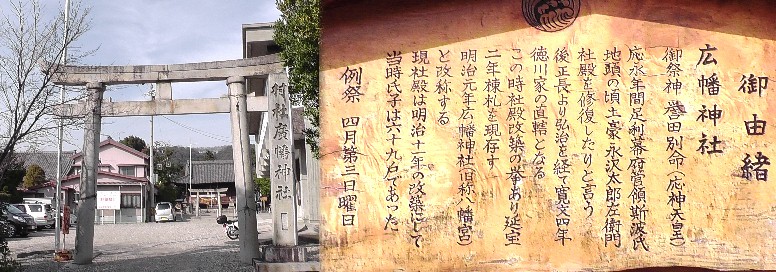 村社廣幡神社
御由緒
広幡神社
御祭神 誉田別命(応神天皇)
応永年間足利幕府管領斯波氏
地頭の頃土豪永又太郎左衛門
社殿を修復したりと言う
後正長より弘治を経て寛文四年
徳川家の直轄となる
この時社殿改築の挙あり延宝
二年棟札を現存す
明治元年広幡神社(旧称八幡宮)
と改称する
現社殿は明治十一年の改築にして
当時氏子は六十九戸であった
例祭 四月第三日曜日